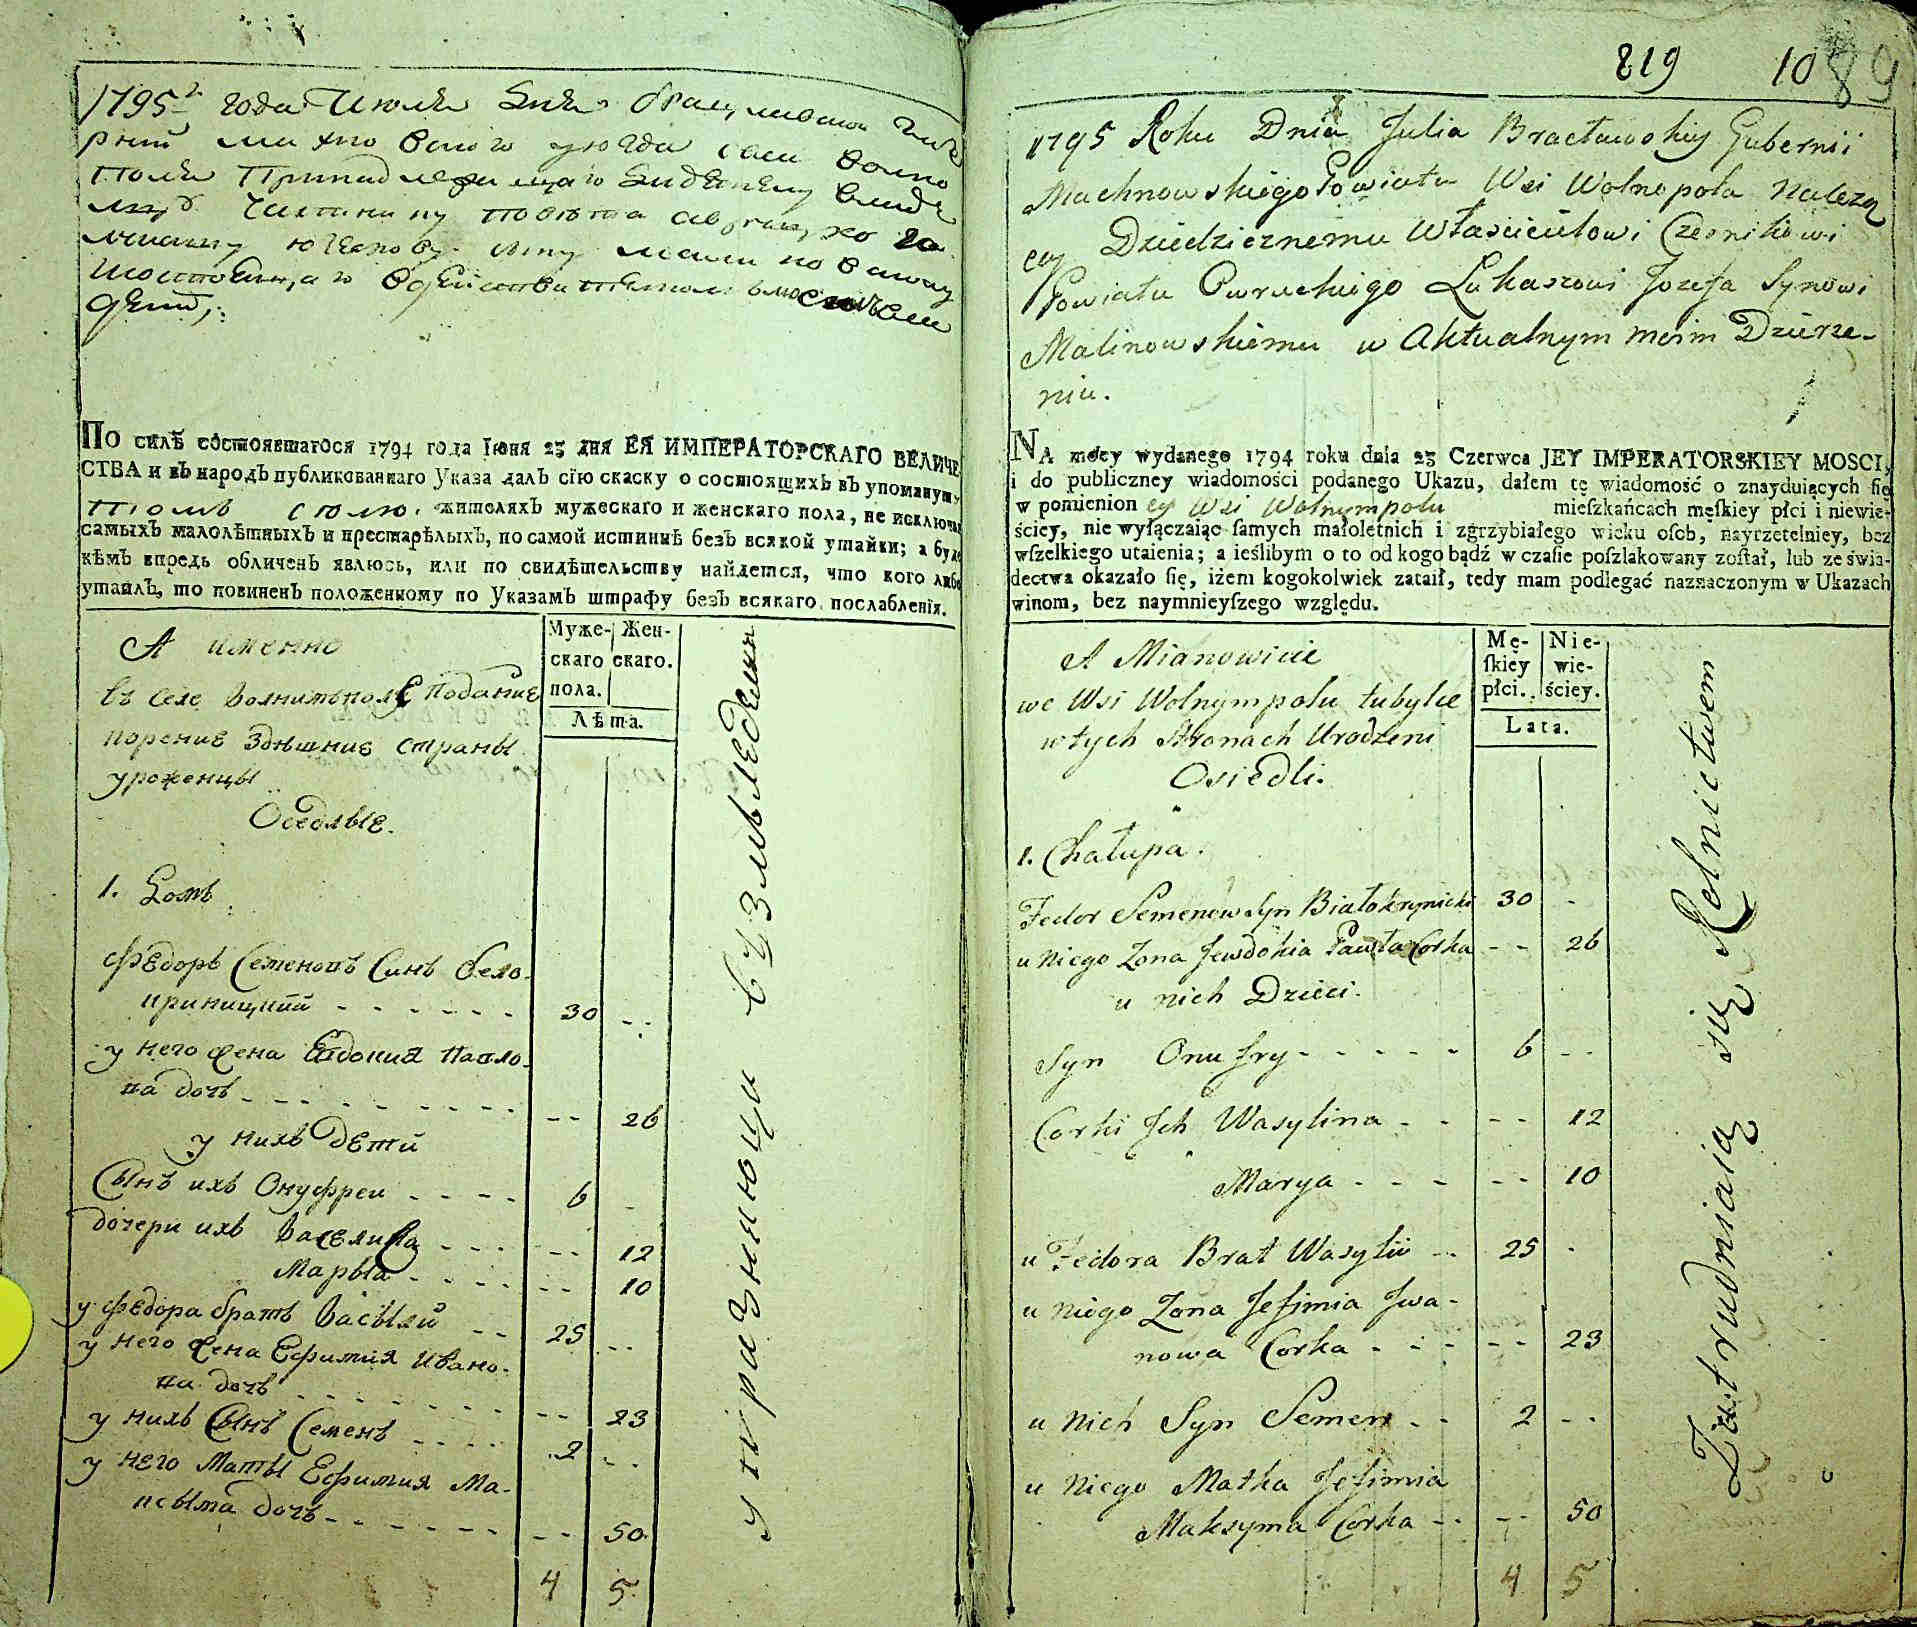 1795 года Июля дня Брацлавской Губе
рнии Махновского уезда села Волно
поля принадлежащаго
ИМПЕРАТОРСКАГО
По силѣ состоявшагося 1794 года Iюня 23 дня ЕЯ ИМПЕРАТОРСКАГО ВЕЛИЧЕ
СТВА и въ народъ публикованнаго Указа далъ сїю скаску о состоящихъ въ упомянут
жителяхъ мужескаго и женскаго пола, не исключая
самыхъ малолѣтныхъ и престарѣлыхъ, по самой истиннѣ безъ всякой утайки; а буде
кѣмъ впредь обличенъ явлюсь, или по свидѣтельству найдется, что кого либо
утаилъ, то повиненъ положенному по Указамъ штрафу безъ всякаго послабленїя.
А именно
въ селе Волнимъполе подание
порение здѣшние страны
уроженцы
Оседлые.
Муже-
скаго
пола.
Жен-
скаго.
Лѣта.
1. Домъ
Федоръ Семеновъ Синъ Бело-
криницкий 30
у него жена Евдокия Павло-
ва дочъ 26
у нихъ дети
Сынъ ихъ Онуфреи 6
дочери ихъ Василина 12
Марыа 10
у Федора братъ Васылий 25
у него жена Ефимия Ивано-
ва дочъ 23
у нихъ Сынъ Семенъ 2
у него Маты Ефимия Ма-
ксыма дочъ 50
4 5
упражняющи въ Землѣдели
819 1089
1795 Roku Dnia Julia Bracławskiy Gubernii
Machnowskiego Powiatu Wsi Wolnopola Należą
cey Dziedzicznemu Właścicielowi Czesnikowi
Powiatu Owruckiego Łukaszowi Jozefa Synowi
Malinowskiemu w Aktualnym moim Dzierże-
niu.
NA mocy wydanego 1794 roku dnia 23 Czerwca JEY IMPERATORSKIEY MOSCI,
i do publiczney wiadomości podanego Ukazu, dałem tę wiadomość o znayduiących ſię
w pomienion ey Wsi Wolnympolu mieſzkańcach męſkiey płci i niewie-
ściey, nie wyłączaiąc ſamych małoletnich i zgrzybiałego wieku oſob, nayrzetelniey, bez
wſzelkiego utaienia; a ieślibym o to od kogo bądź w czaſie poſzlakowany zoſtał, lub ze świa-
dectwa okazało ſię, iżem kogokolwiek zataił, tedy mam podlegać naznaczonym w Ukazach
winom, bez naymnieyſzego względu.
A Mianowicie
we Wsi Wolnympolu tubylce
w tych Stronach Urodzeni
Osiedli.
Mę-
ſkiey
płci.
Nie-
wie-
ściey.
Lata.
1. Chałupa.
Fedor Semenow Syn Białokrynicki 30
u Niego Żona Jewdokia Pawła Corka 26
u nich Dzieci.
Syn Onufry 6
Corki Ich Wasylina 12
Marya 10
u Fedora Brat Wasylii 25
u Niego Żona Jefimia Iwa-
nowa Corka 23
u Nich Syn Semen 2
u Niego Matka Jefimia
Maksyma Corka 50
4 5
Zatrudniaią się Rolnictwem